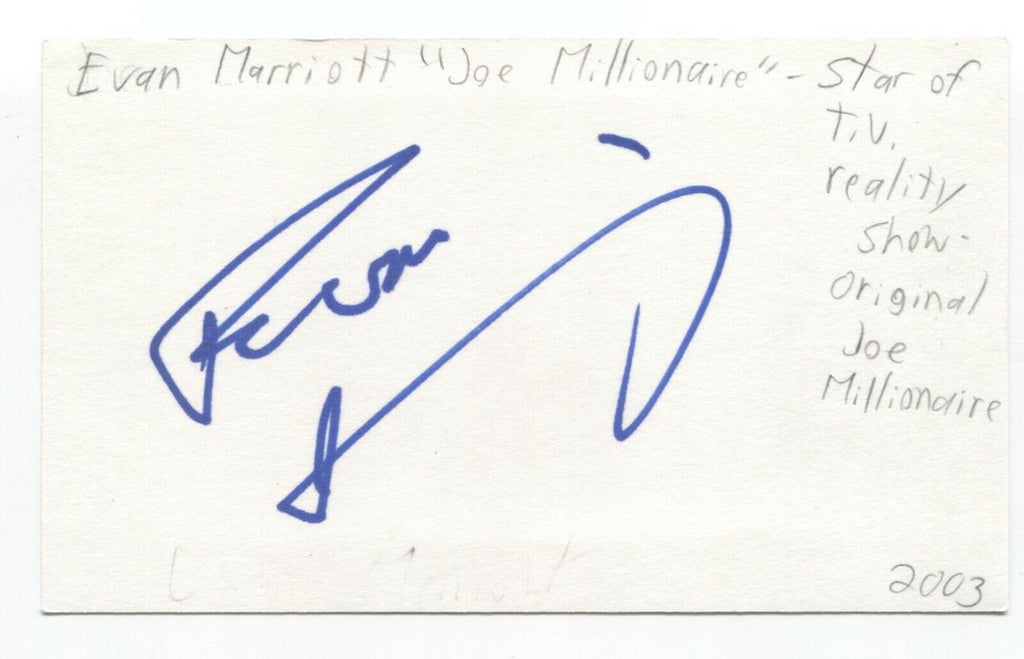 Evan Marriott "Joe Millionaire" - Star of
T.V.
reality
show-
original
Joe
Millionaire
Evan
2003